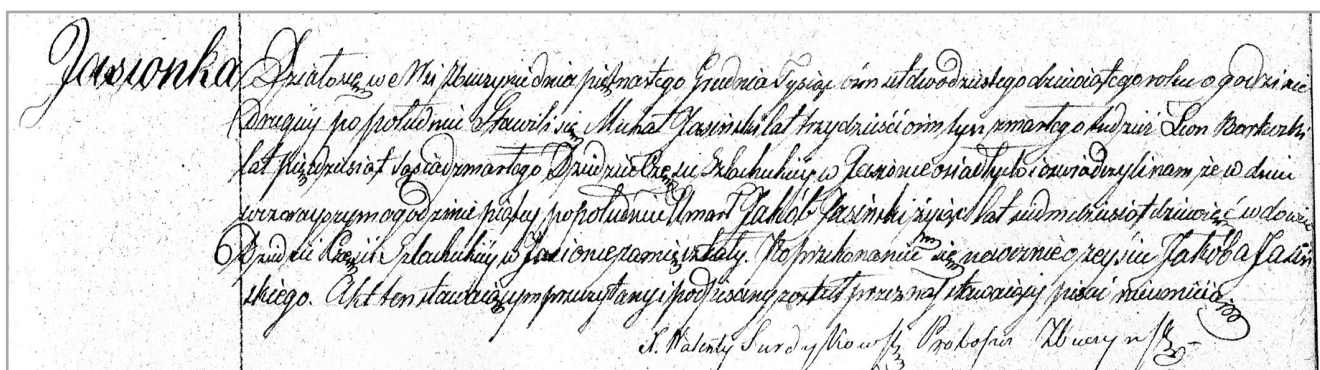 Jasionka
Działo się we Wsi Zbuczynie dnia piętnastego Grudnia Tysiąc ośmset dwudziestego dziewiątego roku o godzinie
drugiey po południu Stawili się Michał Jasiński lat trzydzieści ośm syn zmarłego tudzież Leon Borkoski
lat pięćdziesiąt Sąsiad zmarłego Dziedzice Części Szlacheckiey w Jasionce osiadły i oświadczyli nam że w dniu
wczorayszym o godzinie piątey po południu Umarł Jakób Jasiński żyiący lat siedmdziesiąt dziewięć wdowiec
Dziedzic Części Szlacheckiey w Jasionce zamieszkały. Po przekonaniu się naocznie o zeyściu Jakóba Jasiń
skiego. Akt ten stawaiącym przeczytany i podpisany został przez nas stawaiący pisać nieumieią
X. Walenty Surdykowski Proboszcz Zbuczyński